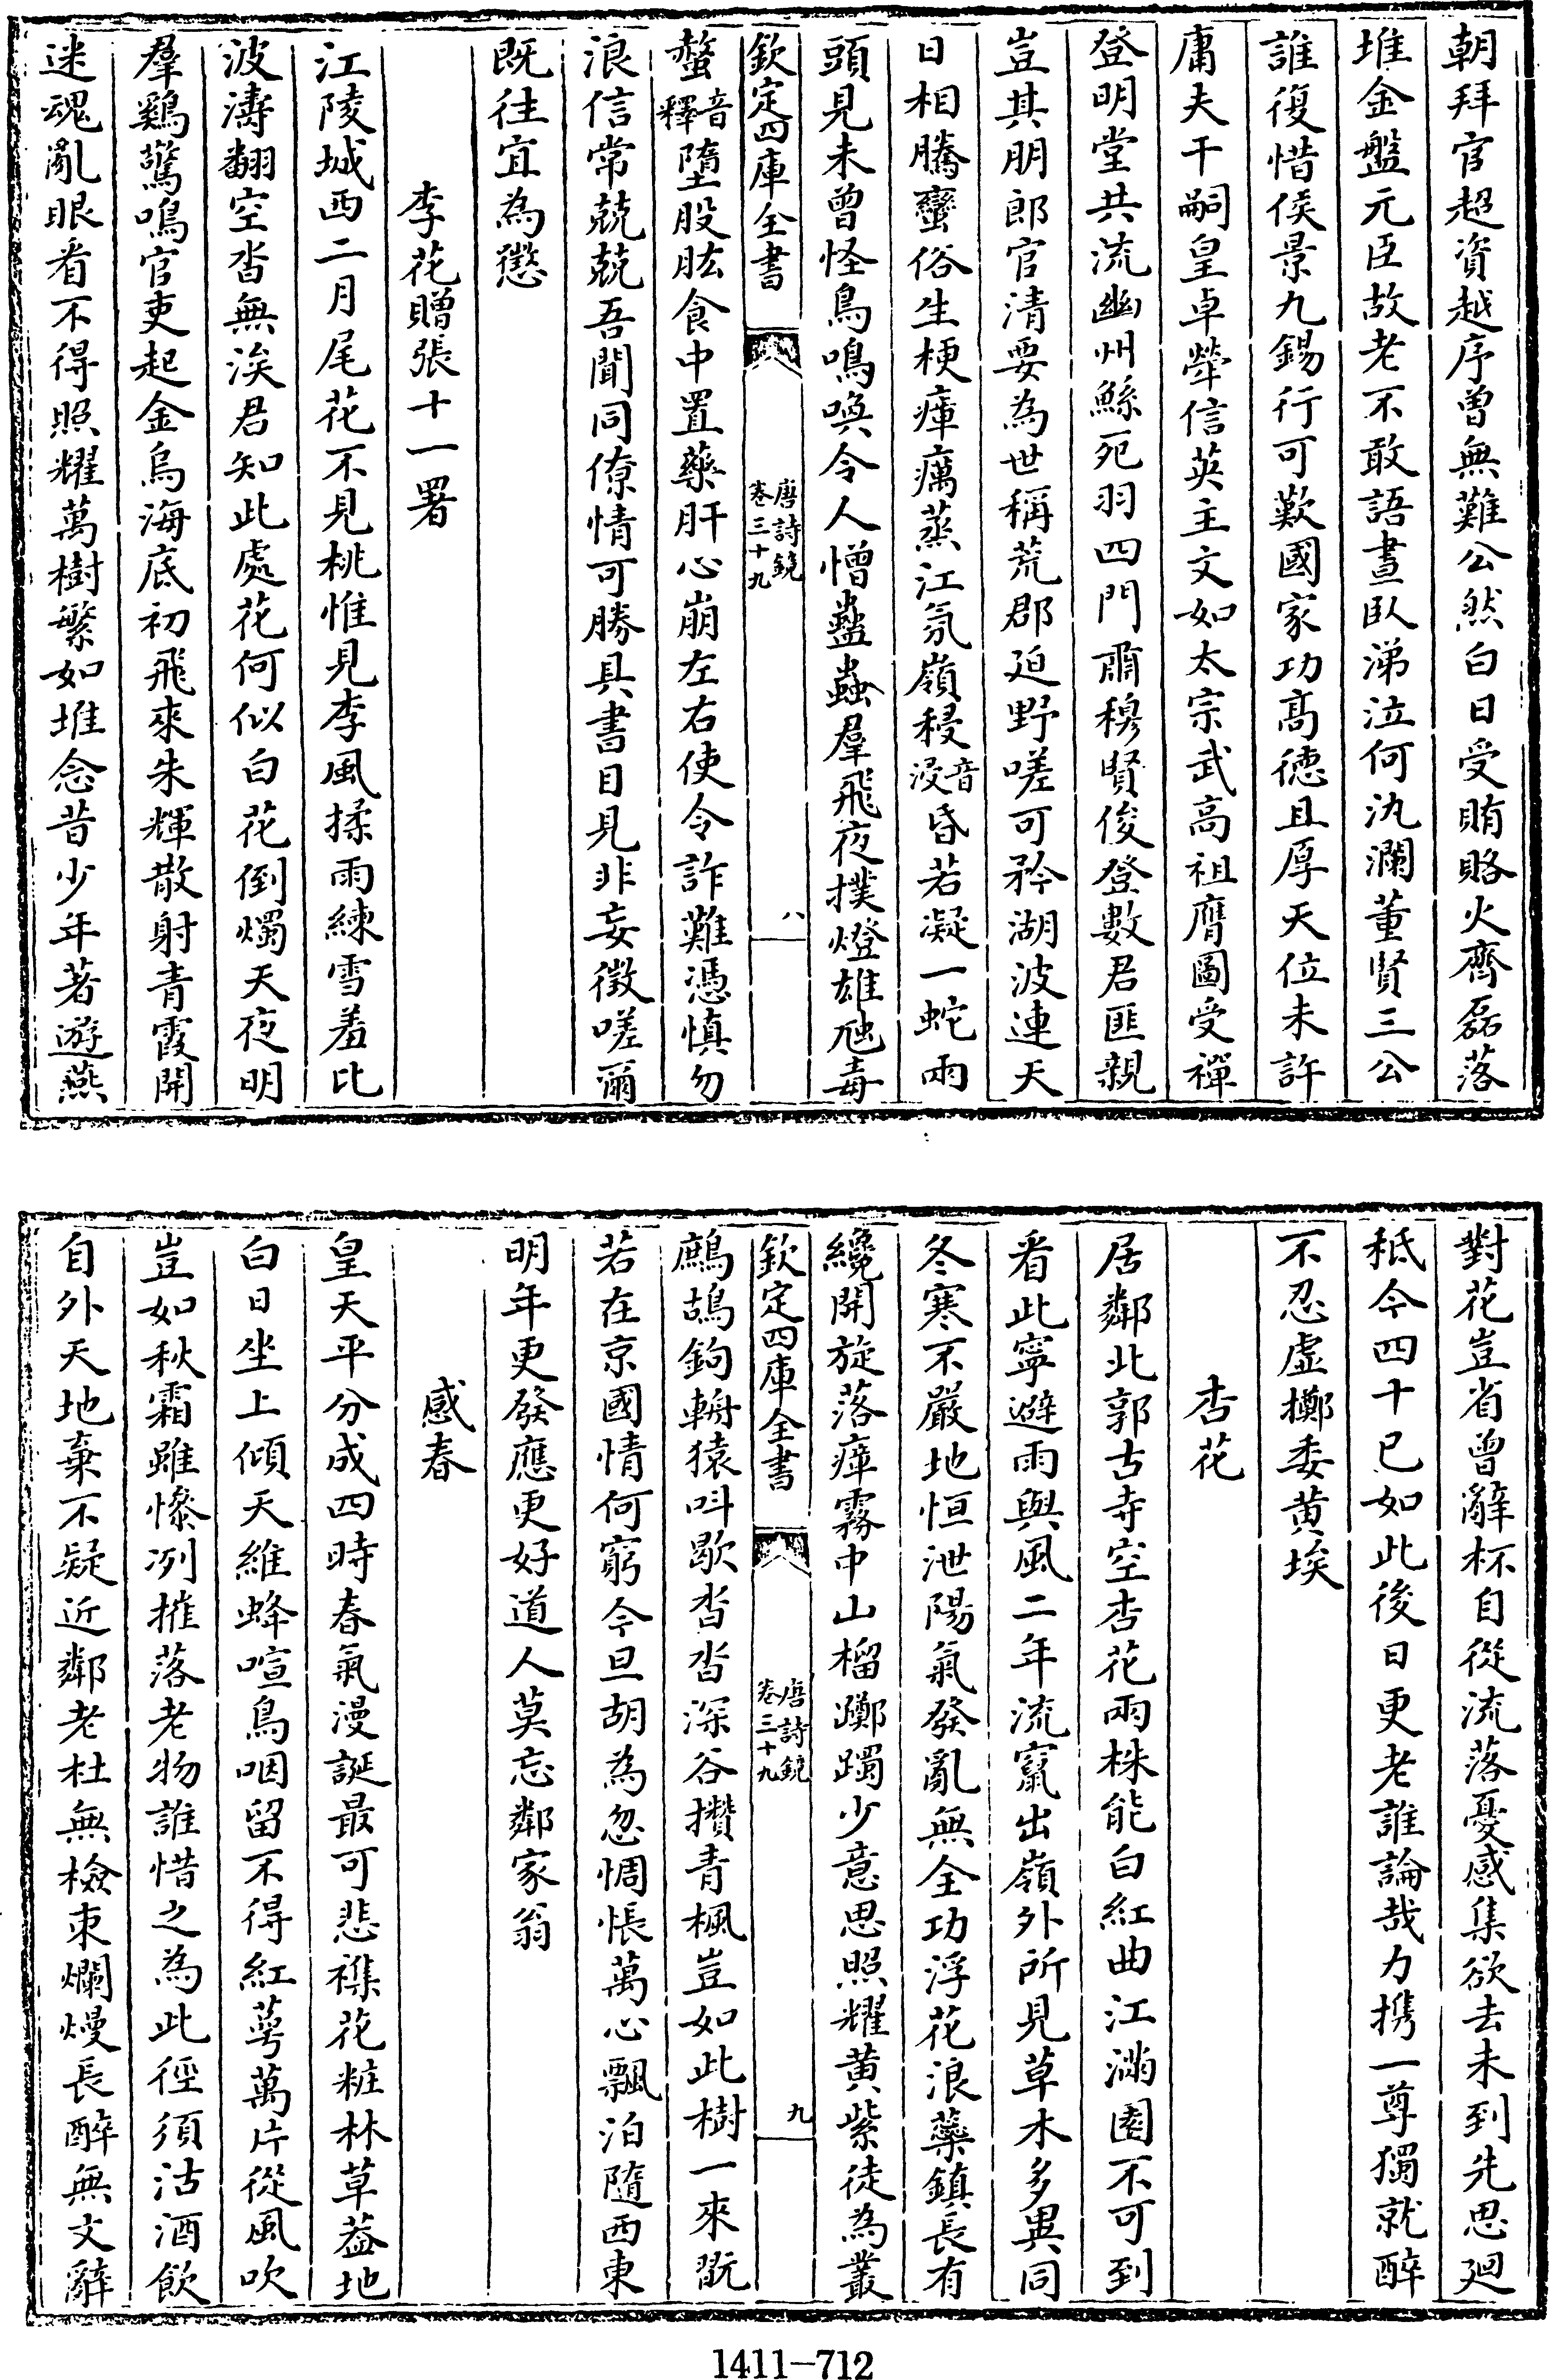 朝拜官超資越序曾無難公然白日受賄賂火齊磊落
堆金盤元臣故老不敢語晝臥涕泣何汍瀾董賢三公
誰復惜侯景九錫行可歎國家功高德且厚天位未許
庸夫干嗣皇卓犖信英主文如太宗武高祖膺圖受禪
登明堂共流幽州鯀死羽四門肅穆賢俊登數君匪親
豈其朋郎官清要為世稱荒郡迫野嗟可矜湖波連天
日相騰蠻俗生梗瘴癘蒸江氛嶺祲音浸昏若凝一蛇兩
頭見未曾怪鳥鳴喚令人憎蠱蟲羣飛夜撲燈雄虺毒
欽定四庫全書 唐詩鏡 卷三十九 八
螫音釋墮股肱食中置藥肝心崩左右使令詐難憑慎勿
浪信常兢兢吾聞同僚情可勝具書目見非妄徵嗟爾
既往宜為懲
李花贈張十一署
江陵城西二月尾花不見桃惟見李風揉雨練雪羞比
波濤翻空杳無涘君知此處花何似白花倒燭天夜明
羣鷄驚鳴官吏起金烏海底初飛來朱輝散射青霞開
迷魂亂眼看不得照耀萬樹繁如堆念昔少年著遊燕
對花豈省曾辭杯自從流落憂感集欲去未到先思廻
秪今四十已如此後日更老誰論哉力携一尊獨就醉
不忍虛擲委黄埃
杏花
居鄰北郭古寺空杏花兩株能白紅曲江滿園不可到
看此寧避雨與風二年流竄出嶺外所見草木多異同
冬寒不嚴地恒泄陽氣發亂無全功浮花浪蘂鎮長有
纔開旋落瘴霧中山榴躑躅少意思照耀黄紫徒為叢
欽定四庫全書 唐詩鏡 卷三十九 九
鷓鴣鉤輈猿叫歇杳杳深谷攢青楓豈如此樹一來翫
若在京國情何窮今旦胡為忽惆悵萬心飄泊隨西東
明年更發應更好道人莫忘鄰家翁
感春
皇天平分成四時春氣漫誕最可悲襍花粧林草葢地
白日坐上傾天維蜂喧鳥咽留不得紅萼萬片從風吹
豈如秋霜雖慘冽摧落老物誰惜之為此徑須沽酒飲
自外天地棄不疑近鄰老杜無檢束爛熳長醉無文辭
1411-712